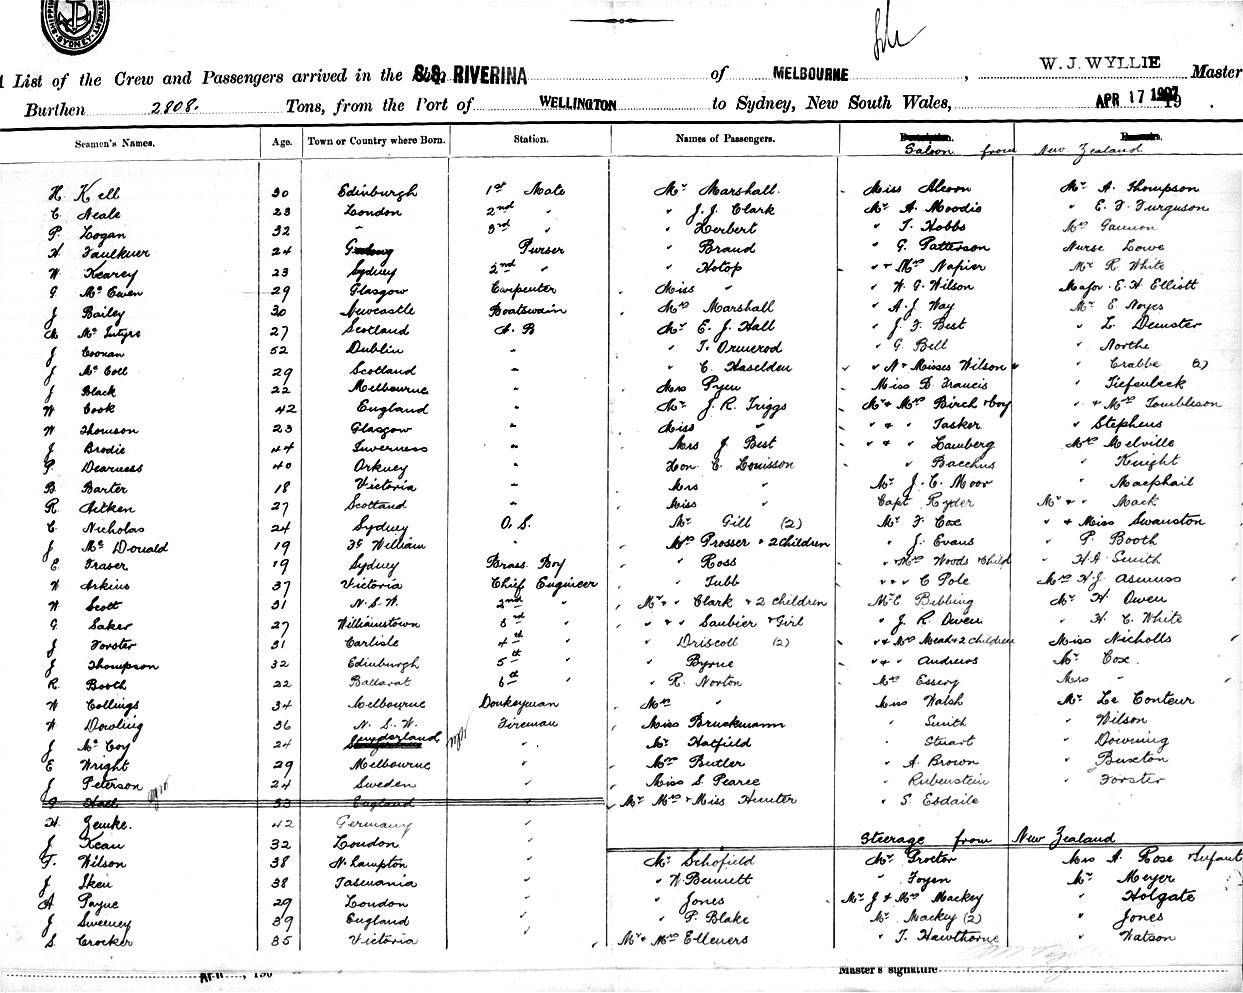 SYDNEY
List of the Crew and Passengers arrived in the S.S. RIVERINA of MELBOURNE, W. J. WYLLIE Master
Burthen 2808. Tons, from the Port of WELLINGTON to Sydney, New South Wales, APR 17 1907
Seamen's Names. Age. Town or Country where Born. Station. Names of Passengers.
Saloon from New Zealand
H. Kell 30 Edinburgh 1st Mate Mr Marshall. Miss Mr A. Thompson
C. Neale 23 London 2nd " " J. J. Clark Mr A. Moodie " E. F. Furguson
P. Logan 32 " 3rd " " Herbert " T. Hobbs Mrs Gannon
H. Faulkner 24 Purser " Braud " G. Patterson Nurse Lowe
W. Kearey 23 Sydney 2nd " " Hotop " + Mrs Napier Mr R. White
G. McEwen 29 Glasgow Carpenter Miss " " W. G. Wilson Major E. H. Elliott
J Bailey 30 Newcastle Boatswain Mrs Marshall " A. J. Way Mr E. Noyes
McIntyre 27 Scotland A. B Mr E. J. Hall " J. F. Best " L. Demster
J Coonan 52 Dublin " " T. Ormerod " G. Bell " Northe
J McColl 29 Scotland " " C. Haselden " + Misses Wilson " Crabbe 2)
J Black 22 Melbourne " Mrs Pyne Miss D. Francis " Tiefenbeck
W Cook 42 England " Mr J. R. Triggs Mr + Mrs Birch + Boy " + Mrs Tombleson
W Thomson 23 Glasgow " Miss " " + " Tasker " Stephens
J Brodie 44 Inverness " Mrs J. Best " + " Lamberg Mrs Melville
P. Dearness 40 Orkney " Hon. C. Louisson " Bacchus " Knight
B. Barter 18 Victoria " Mrs " Mr J. C. Moor " Macphail
R. Aitken 27 Scotland " Miss " Capt Ryder Mr + " Mack
C. Nicholas 24 Sydney O. S. Mr Gill (2) Mr F. Cox " + Miss Swanston
J McDonald 19 Ft William " Mrs Prosser + 2 Children " J. Evans " P. Booth
E. Fraser 19 Sydney Brass Boy " Ross " Mrs Woods + Child " H. A. Smith
W Atkins 37 Victoria Chief Engineer " Tubb " + " C Pole Mrs H. J. Asmuss
W Scott 31 N. S. W. 2nd " Mr + " Clark + 2 Children Mr C. Bibbing Mr H. Owen
G. Saker 27 Williamstown 3rd " " + " Saubier + Girl " J. R. Owen " H. C. White
J Forster 31 Carlisle 4th " " Driscoll (2) " + Mrs Mead + 2 Children Miss Nicholls
J Thompson 32 Edinburgh 5th " " Byrne " + " Andrews Mr Cox.
R. Booth 22 Ballarat 6th " " R. Norton Mrs Essery Mrs "
W Collings 34 Melbourne Donkeyman Mrs " Miss Walsh Mr Le Couteur
W Dowling 36 N. S. W. Fireman Miss Bruckmann " Smith " Wilson
J McCoy 24 Sunderland " Mr Hatfield " Stuart " Downing
E Wright 29 Melbourne " Mrs Butler " A. Brown " Buxton
J Peterson 24 Sweden " Miss S. Pearce " Rubenstein " Forster
Hall 33 England Mr Mrs + Miss Hunter " S. Esdaile
H. Zemke. 42 Germany "
J Kean 32 London " Steerage from New Zealand
T. Wilson 38 N. Hampton " Mr Schofield Mr Procter Mrs A. Rose + Infant
J Sken 38 Tasmania " " W. Bennett " Foyen Mr Meyer
A Payne 29 London " " Jones Mr J + Mrs Mackey " Holgate
J Sweeney 39 England " " P. Blake Mr Mackey (2) " Jones
S. Crocker 35 Victoria " Mr + Mrs Ellener " T. Hawthorne " Watson
Master's signature